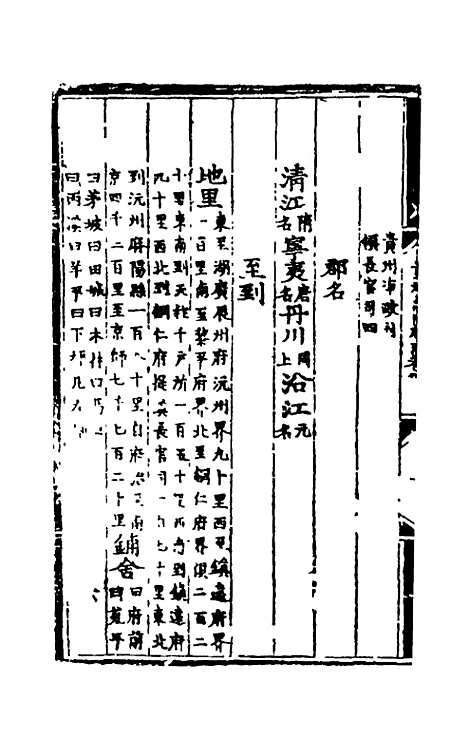 貴州布政司
領長官司四
郡名
清江隋名寧夷唐名丹川同上沿江元名
至到
地里東至湖廣辰州府沅州界九十里西至鎮遠府界
一百里南至黎平府界北至銅仁府界俱二百二
十里東南到天柱千戶所一百五十里西南到鎮遠府
九十里西北到銅仁府提溪長官司一百七十里東北
到沅州麻陽縣一百八十里自府治至南
京四千二百里至京師七千七百二十里鋪舍曰府前曰
曰茅坡曰田城曰木林曰
曰丙溪曰羊平曰下坪凡